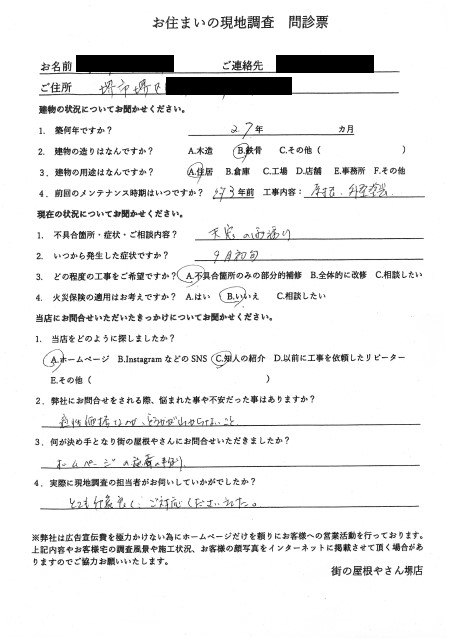 お住まいの現地調査　問診票
お名前　　ご連絡先
ご住所　堺市堺区
建物の状況についてお聞かせください。
1. 築何年ですか？　27年　　カ月
2. 建物の造りはなんですか？　A.木造　B.鉄骨　C.その他（　　）
3. 建物の用途はなんですか？　A.住居　B.倉庫　C.工場　D.店舗　E.事務所　F.その他
4. 前回のメンテナンス時期はいつですか？　約3年前　工事内容：　外壁塗装
現在の状況についてお聞かせください。
1. 不具合箇所・症状・ご相談内容？　天窓の雨漏り
2. いつから発生した症状ですか？　9月初旬
3. どの程度の工事をご希望ですか？　A.不具合箇所のみの部分的補修　B.全体的に改修　C.相談したい
4. 火災保険の適用はお考えですか？　A.はい　B.いいえ　C.相談したい
当店にお問合せいただいたきっかけについてお聞かせください。
1. 当店をどのように探しましたか？
A.ホームページ　B.InstagramなどのSNS　C.知人の紹介　D.以前に工事を依頼したリピーター
E.その他（　　）
2. 弊社にお問合せをされる際、悩まれた事や不安だった事はありますか？
適性価格なのか、どうかがわからないこと
3. 何が決め手となり街の屋根やさんにお問合せいただきましたか？
ホームページの
4. 実際に現地調査の担当者がお伺いしていかがでしたか？
とても感じ良く、ご対応くださいました。
※弊社は広告宣伝費を極力かけない為にホームページだけを頼りにお客様への営業活動を行っております。
上記内容やお客様宅の調査風景や施工状況、お客様の顔写真をインターネットに掲載させて頂く場合があ
りますのでご協力お願いいたします。
街の屋根やさん堺店